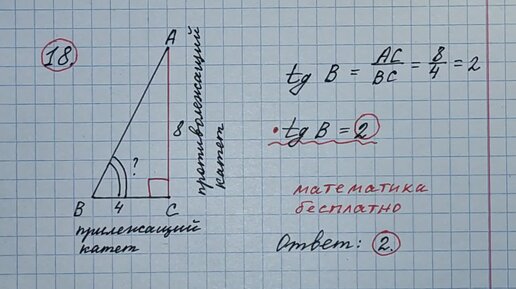 18.
A
8
противолежащий
катет
?
B 4 C
прилежащий
катет
tg B = AC/BC = 8/4 = 2
• tg B = 2
математика
бесплатно
Ответ: 2.